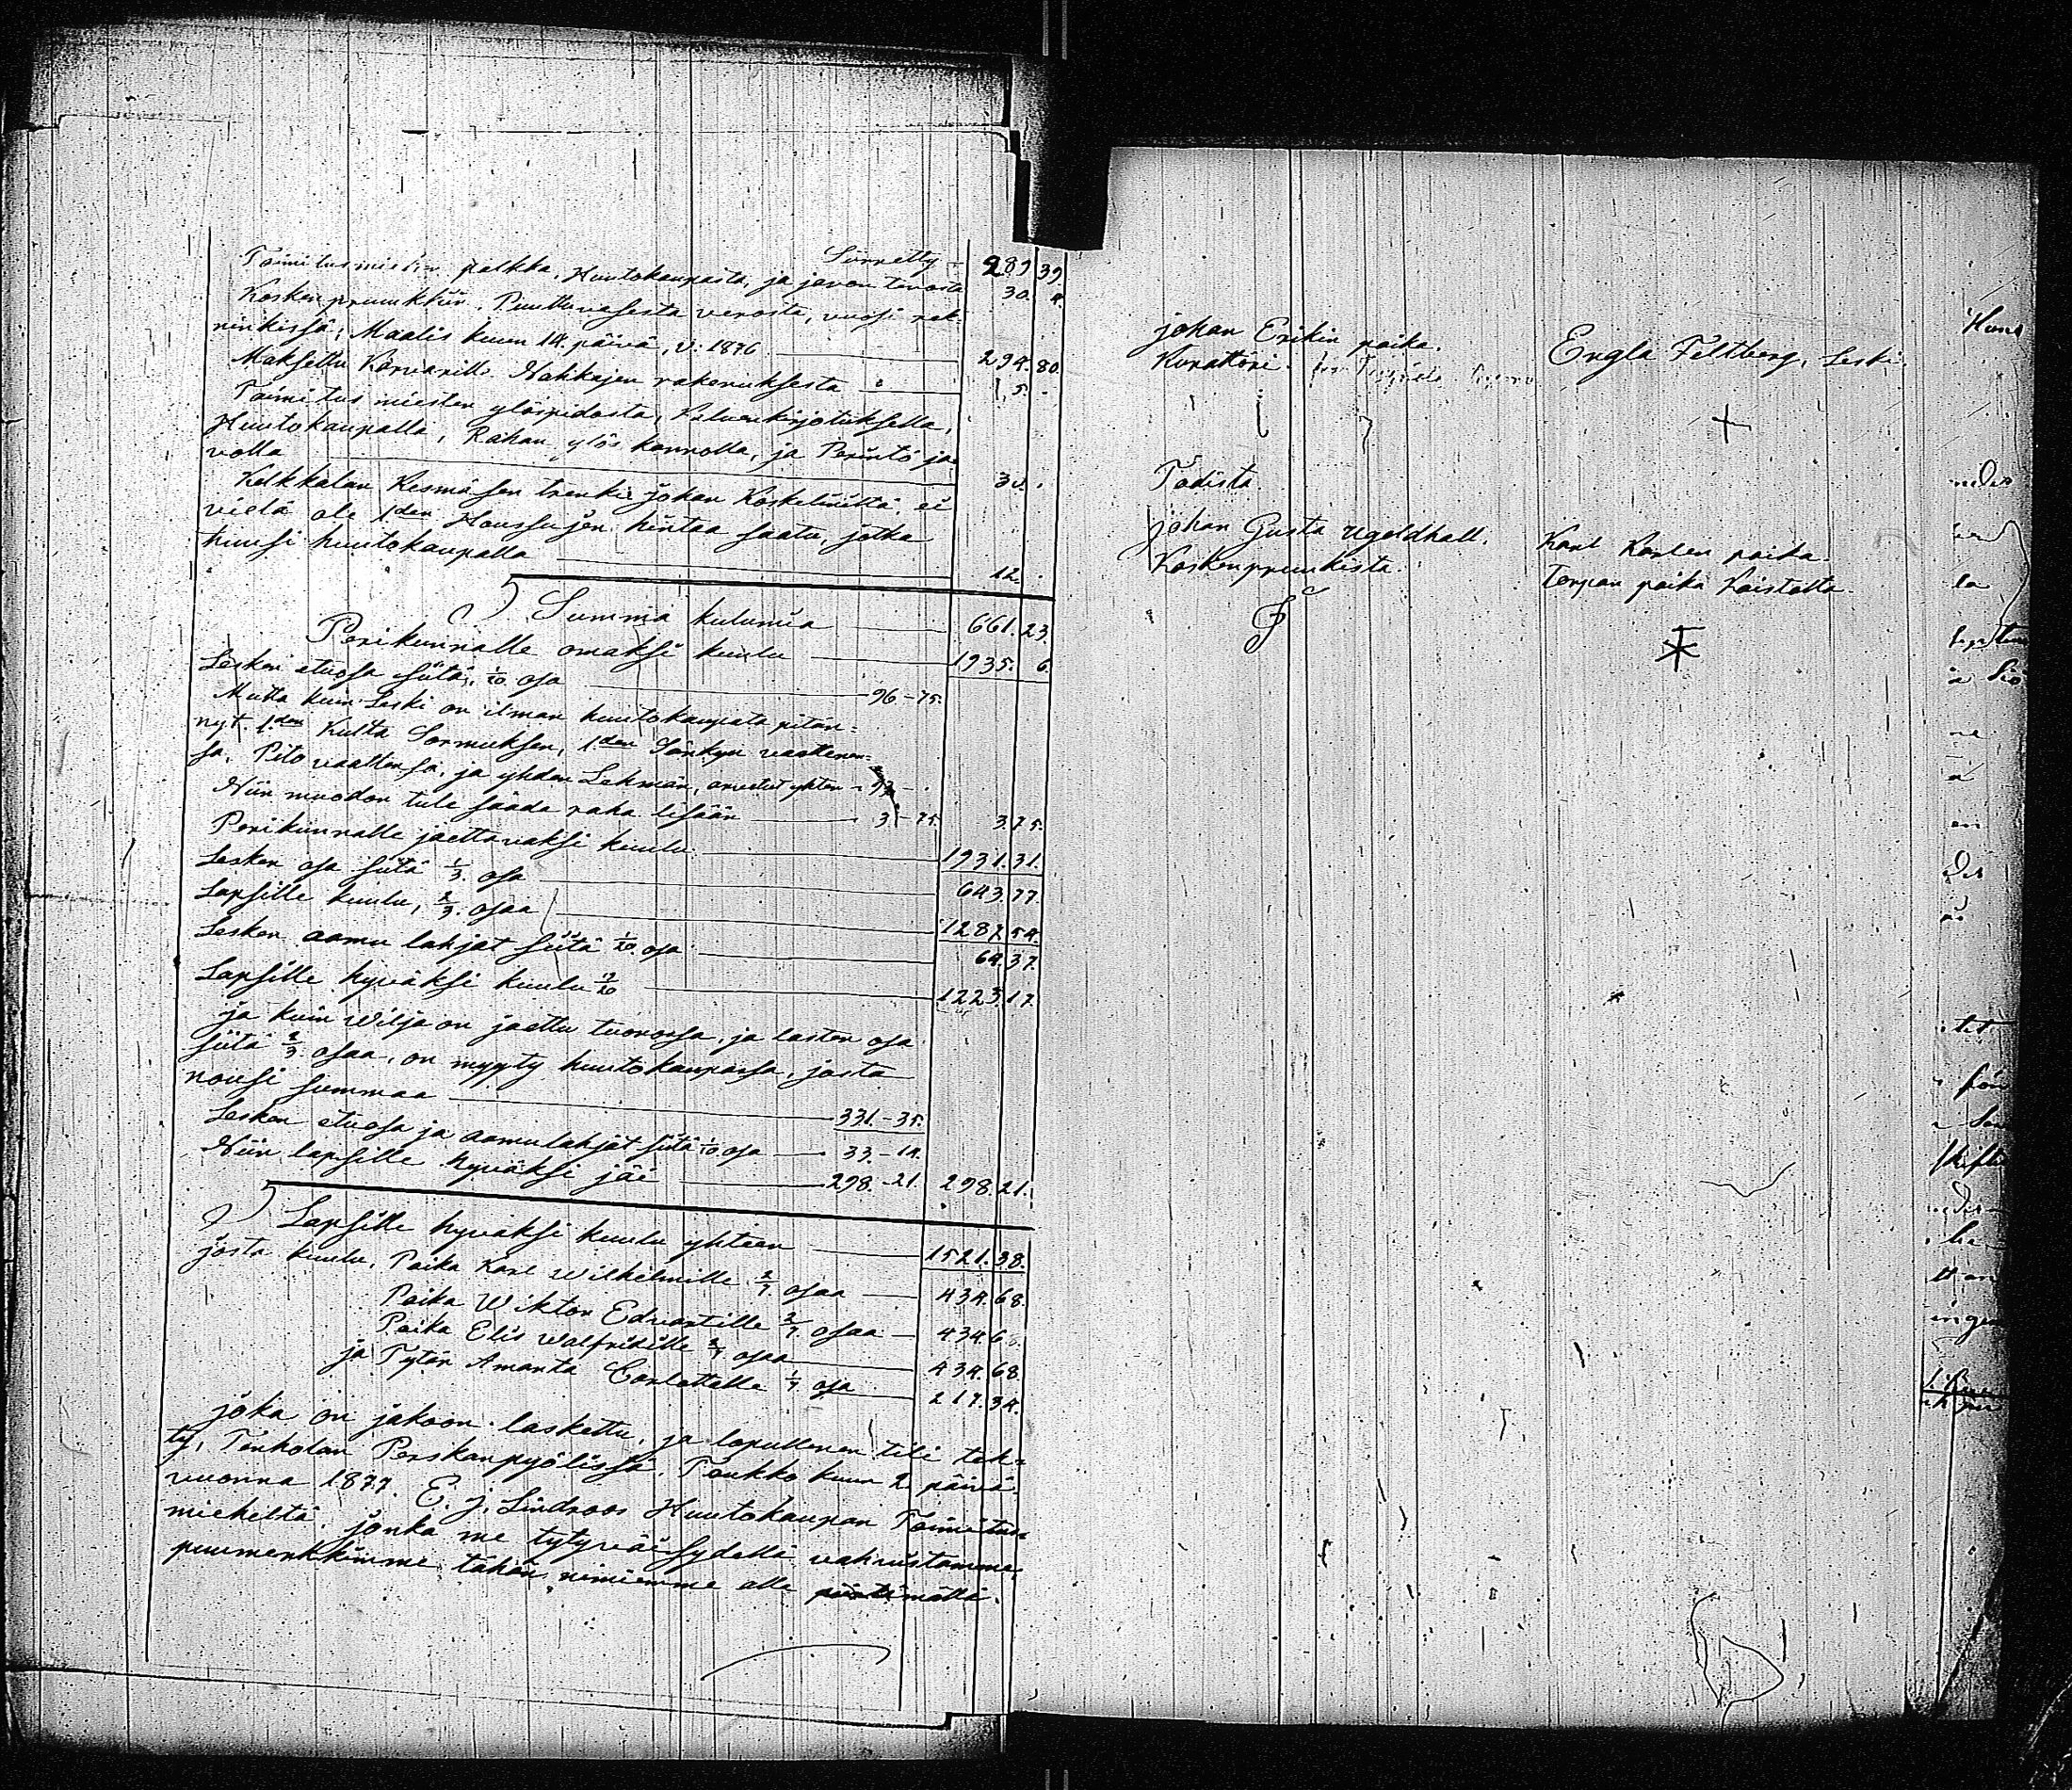 Siirretty 289 39
Toimitusmiesten palkka, Huutokaupasta, ja javon tavosta 30. "
Koskenpruukkiin. Puuttuvasesta verosta, vuosi rek-
ninkissä, Maalis kuun 14 päivä, v: 1876 294.80.
Maksettu Karvarille Nahkajen rakenuksesta 1,5.
Toimitus miesten ylöspidosta, Kaluenkirjotuksella,
Huutokaupalla, Rahan ylös kannolla, ja Perintö ja-
volla 30.
Kelkkalan Kesmäsen trenki johan Koskeliniltä, ei
vielä ole 1den Houssujen hintaa saatu, jotka
huusi huutokaupalla 12.
Summa kulunia 661.23.
Perikunnalle omaksi kuulu 1935. 6.
Lesken etuosa siitä, 1/20 osa 96-75.
Mutta kuin Leski on ilman huutokaupata pitän-
nyt. 1den Kulta Sormuksen, 1den Sänkyn vaattenen-
sa, Pito vaattensa, ja yhden Lehmän, arvetut yhten - 93 -
Niin muodon tule saada raha lisään 3-75. 3.75.
Perikunnalle jaettavaksi kuulu 1931.31.
Lesken osa siitä 1/3. osa 643.77.
Lapsille kuulu, 2/3. osaa 1287.54.
Lesken aamu lahjat siitä 1/20. osa 64.37.
Lapsille hyväksi kuulu 19/20 1223.17.
ja kuin Wilja on jaettu tuorossa, ja lasten osa
siitä 2/3. osaa, on myyty huutokaupassa, josta
nousi summaa 331.-35.
Lesken etuosa ja aamulahjat siitä 1/10 osa 33.-14.
Niin lapsille hyväksi jäi 298.-21. 298.21.
Lapsille hyväksi kuulu yhteen 1521.38.
josta kuulu, Poika Karl Wilhelmille 2/7 osaa 434.68.
Poika Wiktor Edvartille 2/7 osaa 434.6
Poika Elis Walfridille 2/7 osaa 434.68
ja Tytär Amanta Carlottalle 1/7 osa 217.34.
joka on jakoon laskettu, ja lopullenen tili teh-
ty, Tenholan Perskanpyölissä, Toukko kuun 2 päivä
vuonna 1877. E. J. Lindroos Huutokaupan Toimitus
mieheltä, jonka me tytyväisydellä vahvistamme,
puumerkkimme tähän nimiemme alle piirtämällä.
johan Erikin poika.
Kurattori.
Engla Feltberg, Leski.
Todista
johan Gusta Ugeldhall.
Koskenpruukista.
Karl Karlen poika
torpan poika Koistolta.